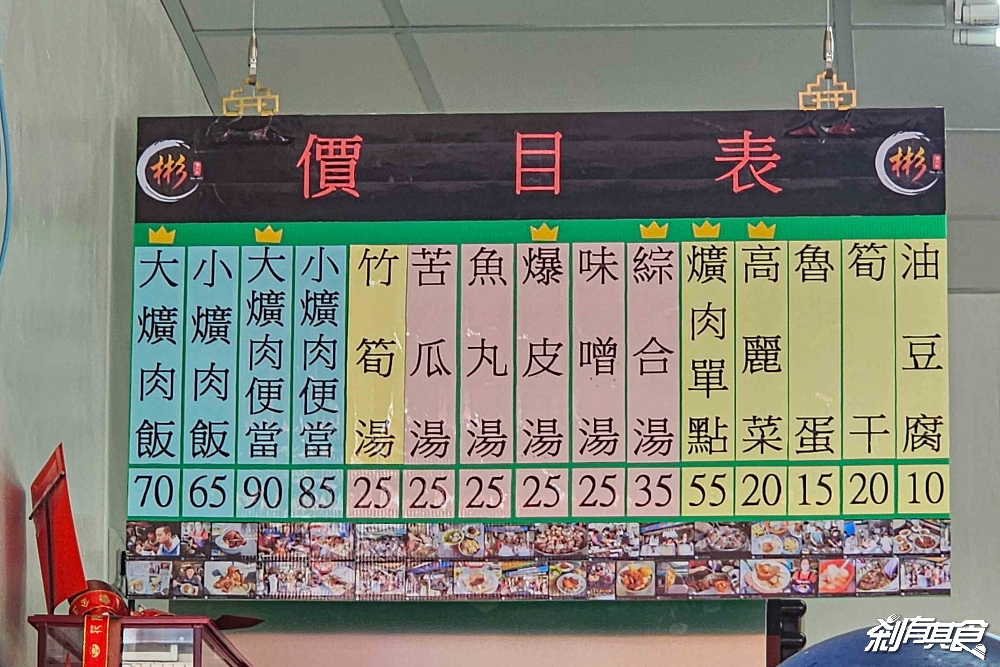 價目表
彬
彬
大爌肉飯 70
小爌肉飯 65
大爌肉便當 90
小爌肉便當 85
竹筍湯 25
苦瓜湯 25
魚丸湯 25
爆皮湯 25
味噌湯 25
綜合湯 35
爌肉單點 55
高麗菜 20
魯蛋 15
筍干 20
油豆腐 10
剎有其食